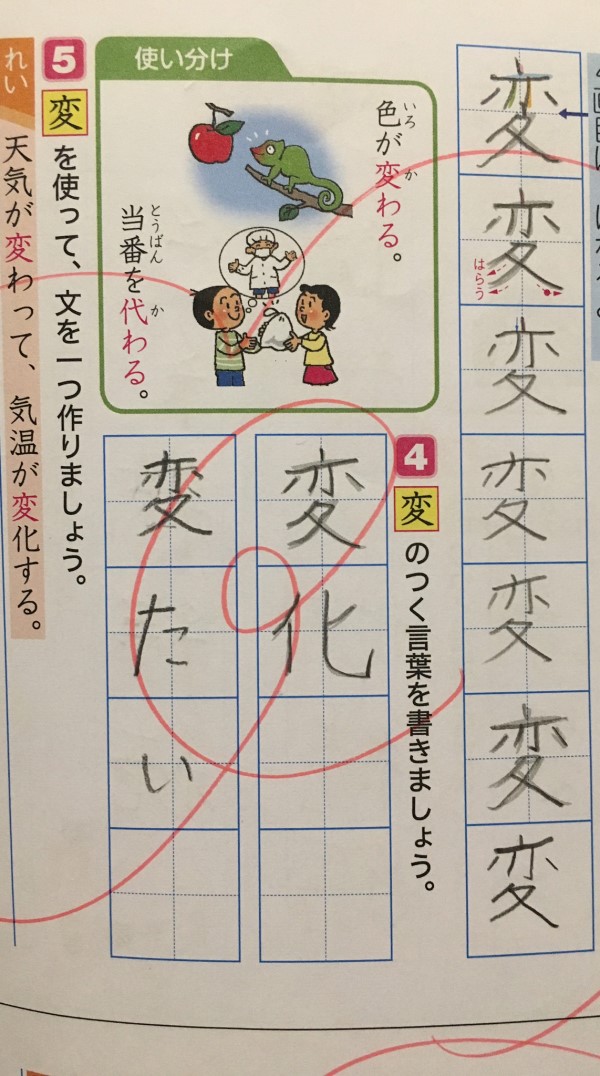 変
変
はらう
変
変
変
変
変
4 変のつく言葉を書きましょう。
変化
変たい
使い分け
いろ か
色が変わる。
とうばん か
当番を代わる。
5 変を使って、文を一つ作りましょう。
れい
天気が変わって、気温が変化する。